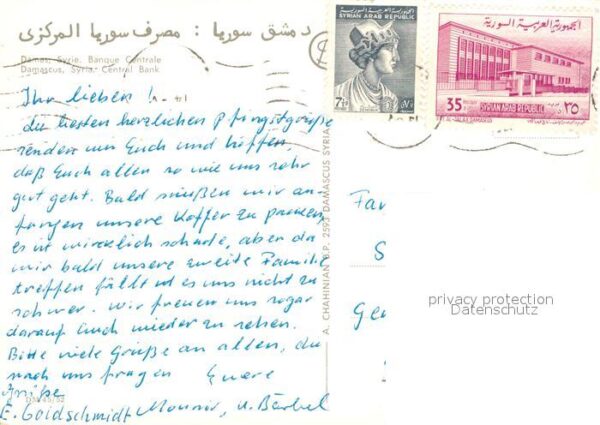 دمشق سوريا : مصرف سوريا المركزي
Damas, Syrie, Banque Centrale
Damascus, Syria, Central Bank
Ihr lieben!
die besten herzlichen Pfingstgrüße
senden wir Euch und hoffen
daß Euch allen so wie uns sehr
gut geht. Bald müßen wir an-
fangen unsere Koffer zu packen,
es ist wircklich schade, aber da
wir bald unsere zweite Familie
treffen fällt es uns nicht zu
schwer. Wir freuen uns sogar
darauf Euch wieder zu sehen.
Bitte viele Grüße an allen, die
nach uns fragen Euere
Grüße
E. Goldschmidt Mounir, u. Bärbel
DM 45/52
A. CHAHINIAN B.P. 2593 DAMASCUS SYRIA
SYRIAN ARAB REPUBLIC
7½
الجمهورية العربية السورية
35
SYRIAN ARAB REPUBLIC
٣٥
Fa
S
Ge
privacy protection
Datenschutz